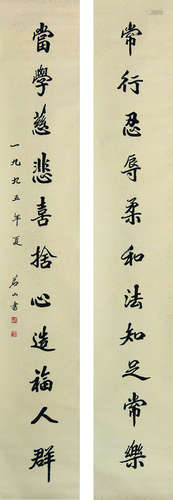 常行忍辱柔和法知足常樂
當學慈悲喜捨心造福人群
一九九五年夏
若山書